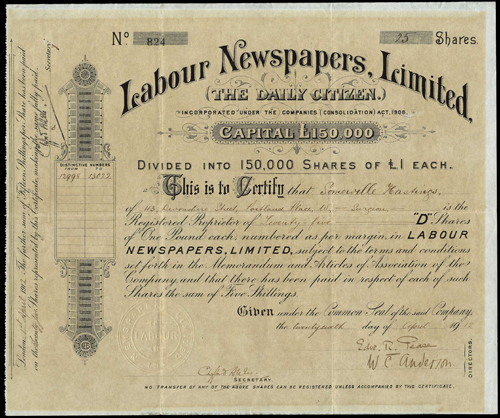 No. 824 25 Shares.
Labour Newspapers, Limited.
(THE DAILY CITIZEN.)
INCORPORATED UNDER THE COMPANIES (CONSOLIDATION) ACT, 1908.
CAPITAL £150,000
DIVIDED INTO 150,000 SHARES OF £1 EACH.
This is to Certify that Somerville Hastings,
of 43, Devonshire Street, Portland Place, W. Surgeon is the
Registered Proprietor of Twenty five "D" Shares
of One Pound each, numbered as per margin, in LABOUR
NEWSPAPERS, LIMITED, subject to the terms and conditions
set forth in the Memorandum and Articles of Association of the
Company, and that there has been paid in respect of each of such
Shares the sum of Five Shillings.
Given under the Common Seal of the said Company,
the twenty sixth day of April 19
Edw. R. Pease
W. C. Anderson
DIRECTORS.
SECRETARY.
NO TRANSFER OF ANY OF THE ABOVE SHARES CAN BE REGISTERED UNLESS ACCOMPANIED BY THIS CERTIFICATE.
DISTINCTIVE NUMBERS
FROM TO
London, April 1912. The further sum of Fifteen Shillings per Share has been paid
on the twenty five Shares represented by this Certificate, making the same fully paid.
Secretary.